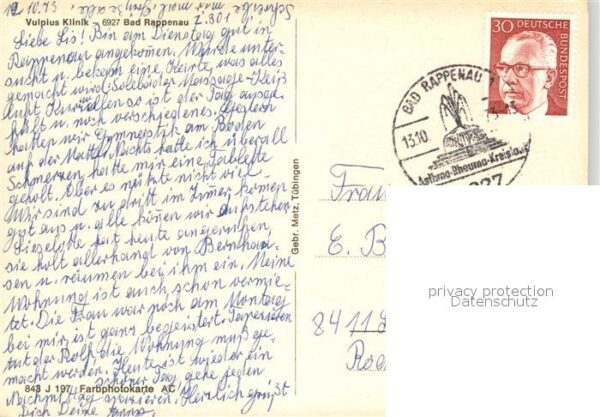 12.10.73
Schreibe mir mal. Grüße alle.
Z. 301
Vulpius Klinik – 6927 Bad Rappenau
Liebe Lis! Bin am Dienstag gut in
Rappenau angekommen. Wurde unter-
sucht u. bekam eine Karte was alles
gemacht wird. Solebäder Massage Heiß
luft so ist der Tag ausge-
füllt u. noch verschiedenes. Gestern
hatten wir Gymnastik am Boden
auf der Matte. Nachts hatte ich überall
Schmerzen hatte mir eine Tablette
geholt. Aber es nützte nicht viel.
Wir sind zu dritt im Zimer. komen
gut aus u. alle könen wir aufstehen
Lieselotte hat heute angerufen,
sie holt allerhand von Bernhau-
sen u. räumen bei ihm ein. Meine
Wohnung ist auch schon vermie-
tet. Die Frau war noch am Montag
bei mir ist ganz begeistert. Tapezieren
tut der Rolf die Wohnung muß ge-
macht werden. Heute ist wieder ein
schöner Tag, gehe jeden
Nachmittag spazieren. Herzlich grüßt
Dich Deine
843 J 197 Farbphotokarte AC
Gebr. Metz, Tübingen
30 DEUTSCHE
BUNDESPOST
BAD RAPPENAU
13.10.
Asthma-Rheuma-Kreislauf
6927
Frau
E. B
8411
privacy protection
Datenschutz